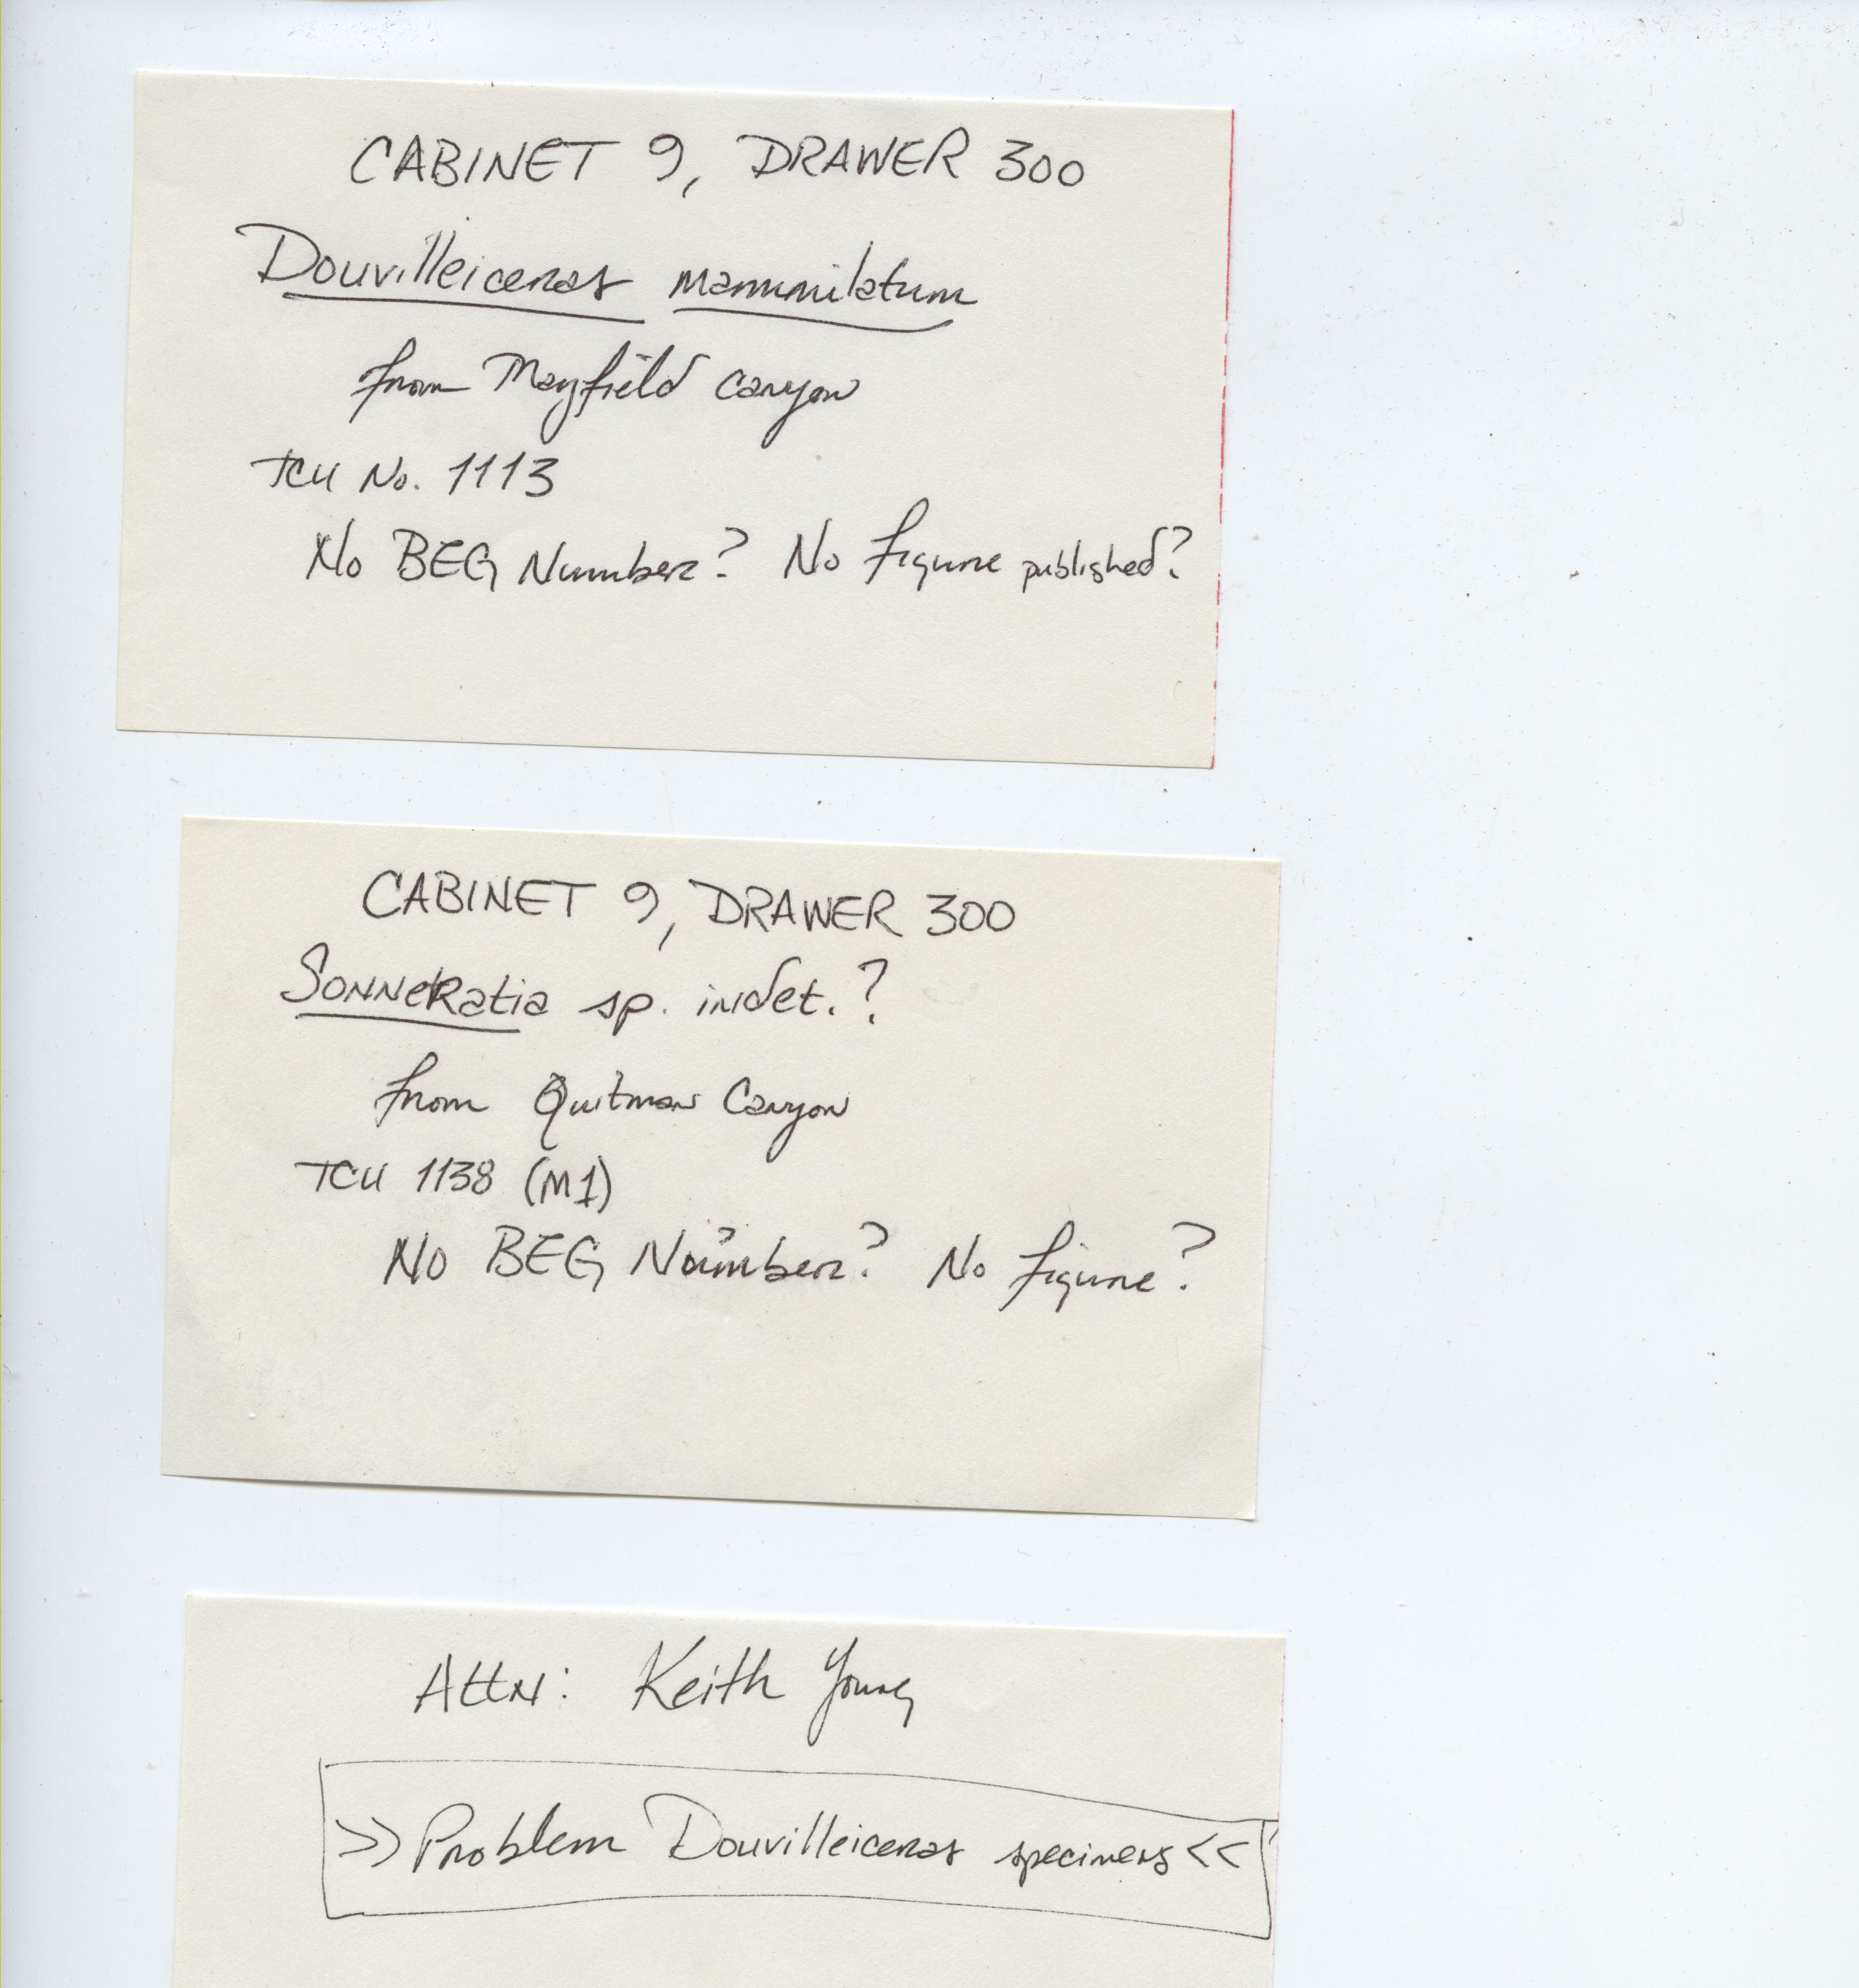 CABINET 9, DRAWER 300
Douvilleiceras mammilatum
from Mayfield Canyon
TCU No. 1113
No BEG Number? No figure published?
CABINET 9, DRAWER 300
Sonneratia sp. indet.?
from Quitman Canyon
TCU 1138 (M1)
No BEG Number? No figure?
Attn: Keith Young
>> Problem Douvilleiceras specimens <<